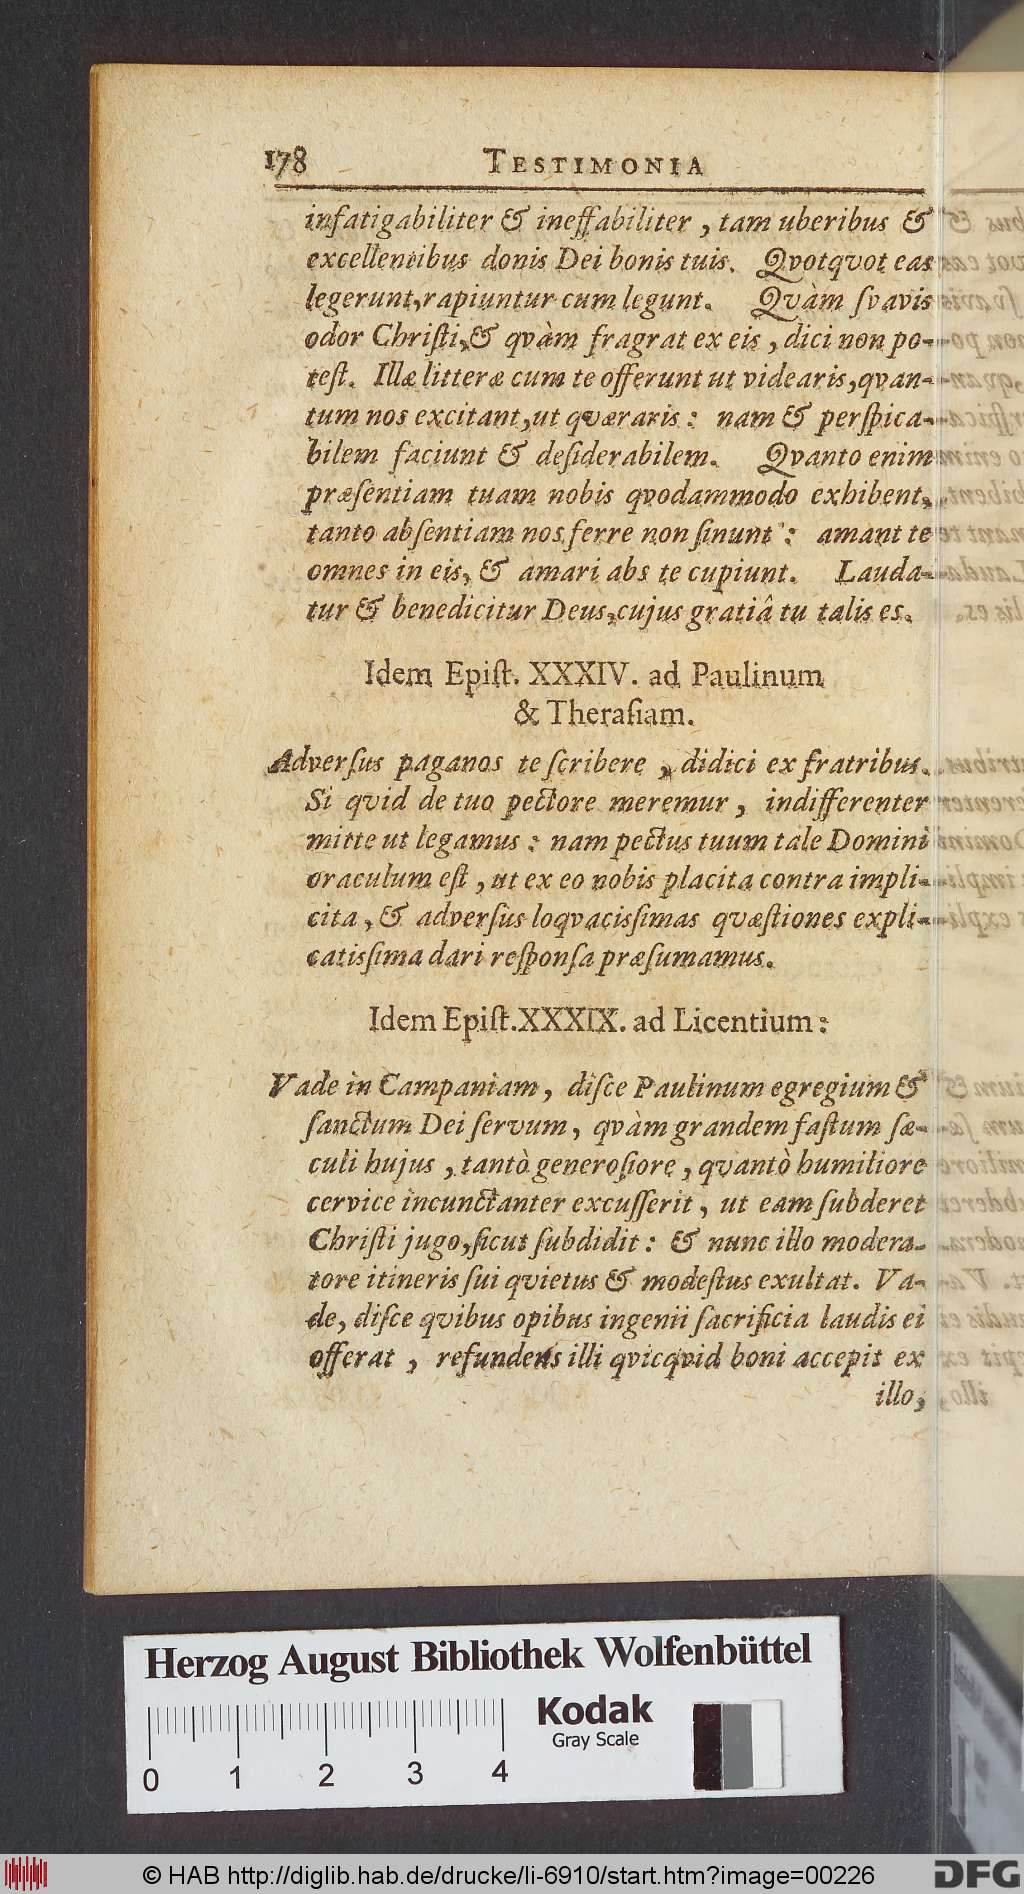 178 TESTIMONIA
infatigabiliter & ineffabiliter, tam uberibus &
excellentibus donis Dei bonis tuis. Qvotqvot eas
legerunt, rapiuntur cum legunt. Qvàm ſvavis
odor Chriſti, & qvàm fragrat ex eis, dici non po-
teſt. Illæ litteræ cum te offerunt ut videaris, qvan-
tum nos excitant, ut qværaris: nam & perſpica-
bilem faciunt & deſiderabilem. Qvanto enim
præſentiam tuam nobis qvodammodo exhibent,
tanto abſentiam nos ferre non ſinunt: amant te
omnes in eis, & amari abs te cupiunt. Lauda-
tur & benedicitur Deus, cujus gratiâ tu talis es.
Idem Epiſt. XXXIV. ad Paulinum
& Theraſiam.
Adverſus paganos te ſcribere, didici ex fratribus.
Si qvid de tuo pectore meremur, indifferenter
mitte ut legamus: nam pectus tuum tale Domini
oraculum eſt, ut ex eo nobis placita contra impli-
cita, & adverſus loqvacisſimas qvæſtiones expli-
catisſima dari reſponſa præſumamus.
Idem Epiſt. XXXIX. ad Licentium:
Vade in Campaniam, diſce Paulinum egregium &
ſanctum Dei ſervum, qvàm grandem faſtum ſæ-
culi hujus, tantò generoſiore, qvantò humiliore
cervice incunctanter excuſſerit, ut eam ſubderet
Chriſti jugo, ſicut ſubdidit: & nunc illo modera-
tore itineris ſui qvietus & modeſtus exultat. Va-
de, diſce qvibus opibus ingenii ſacrificia laudis ei
offerat, refundens illi qvicqvid boni accepit ex
illo,
Herzog August Bibliothek Wolfenbüttel
Kodak
Gray Scale
0 1 2 3 4
© HAB http://diglib.hab.de/drucke/li-6910/start.htm?image=00226
DFG